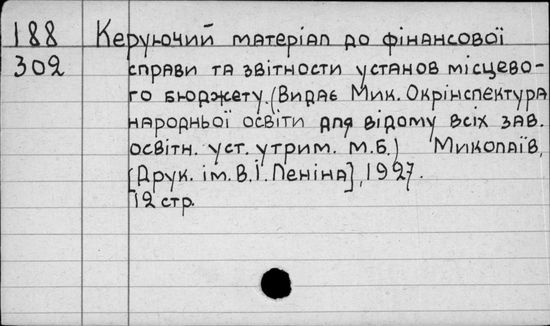 188 Керуючий матеріал до фінансової
302 справи та звітности установ місцево-
го бюджету. (Видає Мик. Окрінспектура
народньої освіти для відому всіх зав.
освітн. уст. утрим. м.б.) Миколаїв,
[Друк. ім. В.І. Леніна], 1927.
12 стр.